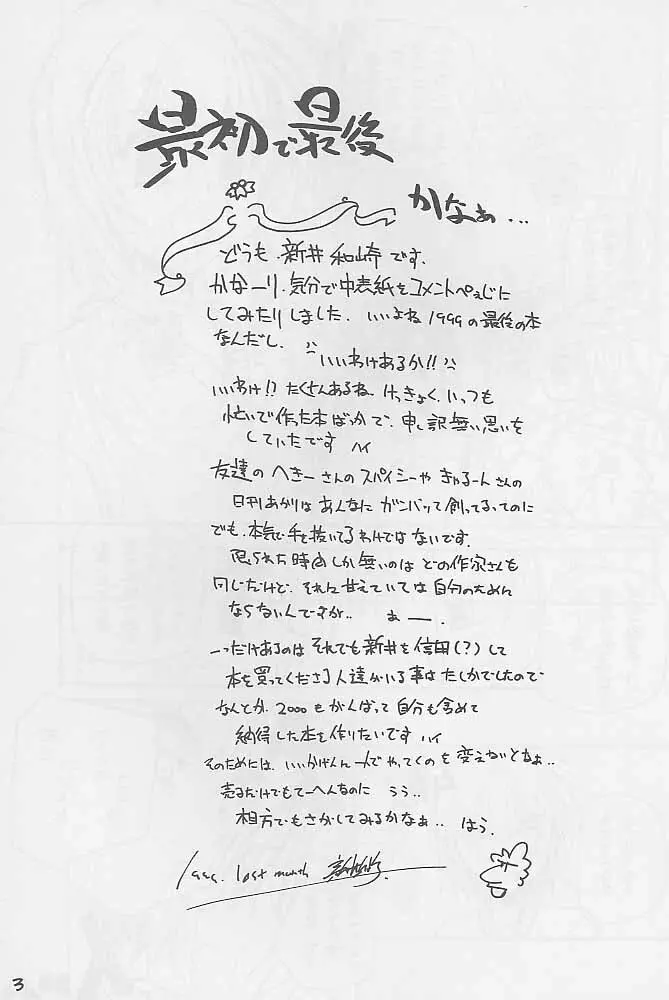 最初で最後
かなぁ...
どうも.新井和崎です.
かなーり.気分で中表紙をコメントぺぇじに
してみたりしました. いいよね 1999の最後の本
なんだし.
いいわけあるか!!
いいわけ!? たくさんあるね. けっきょく.いっつも
忙いで作った本ばっかで. 申し訳無い思いを
していたです ハイ
友達の へきーさんのスパイシーや きゃるーん さんの
日刊あかりは あんなに ガンバッて創ってるってのに
でも.本気で手を抜いてるわけではないです.
限られた時間しか無いのは どの作家さんも
同じだけど. それに甘えていては自分のために
ならないんですが.. ぁー.
一つだけあるのは それでも新井を信用(?)して
本を買ってくださる人達がいる事は たしかでしたので
なんとか. 2000も がんばって 自分も含めて
納得した本を作りたいです ハイ
そのためには. いいかげん 一人で やってくのを 変えないとなぁ..
売るだけでもてーへんなのに うぅ..
相方でもさがしてみるかなぁ.. はう.
1999. last month
3